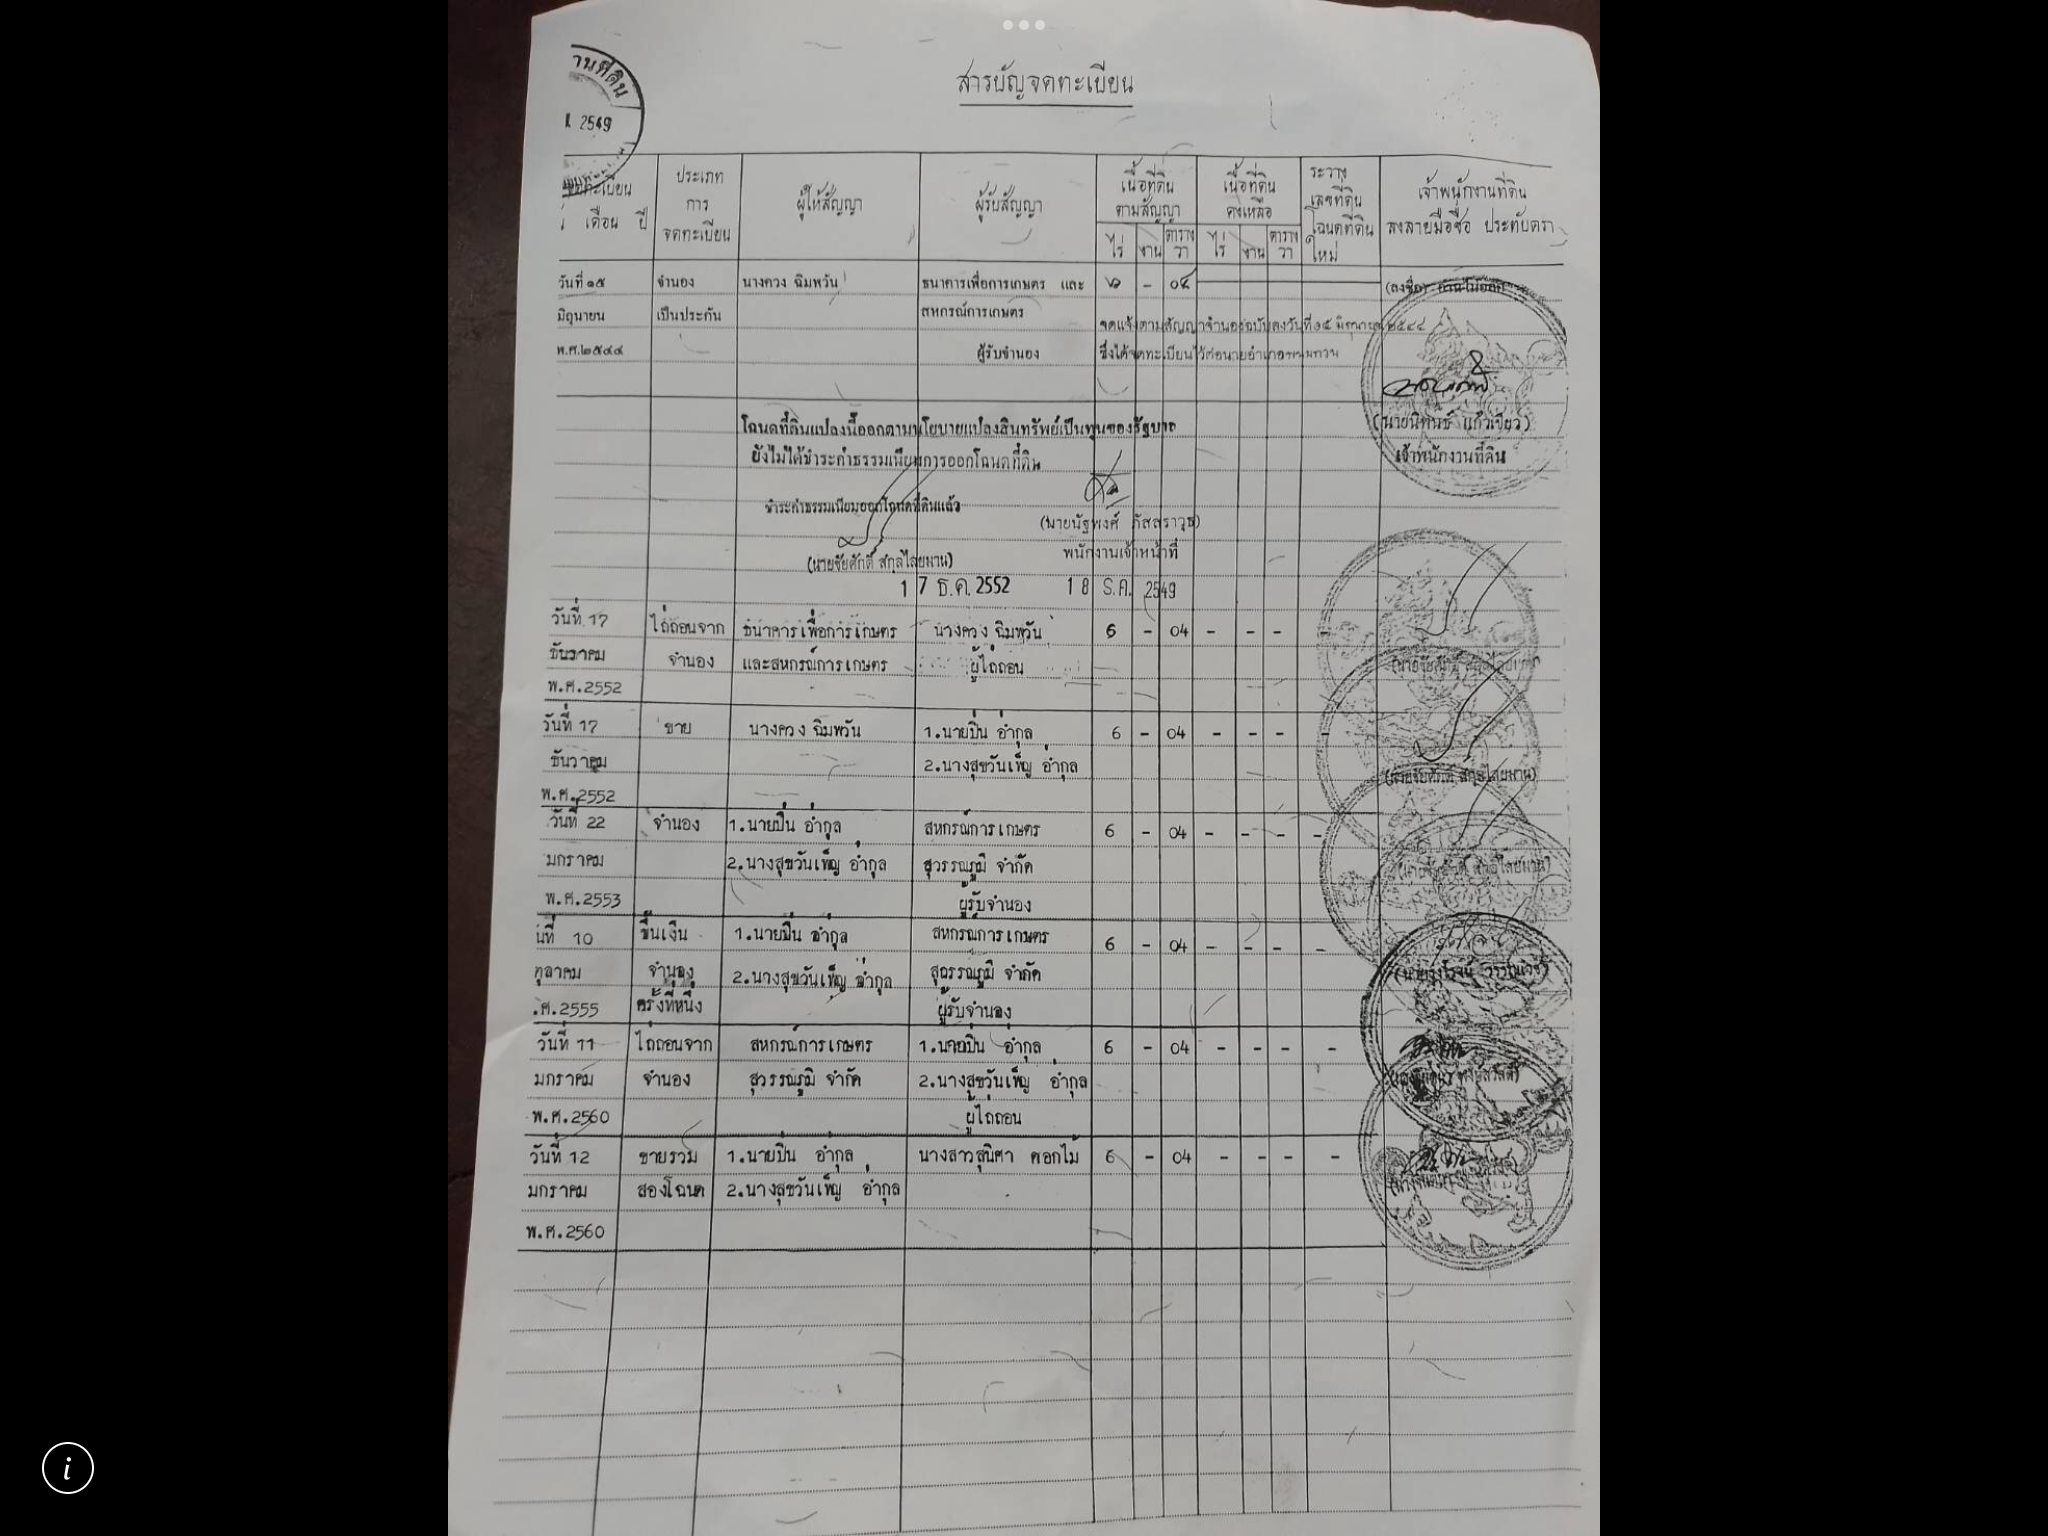 สารบัญจดทะเบียน
านที่ดิน
2549
จดทะเบียน
เดือน ปี
ประเภท
การ
จดทะเบียน
ผู้ให้สัญญา
ผู้รับสัญญา
เนื้อที่ดิน
ตามสัญญา
ไร่ งาน ตาราง
วา
เนื้อที่ดิน
คงเหลือ
ไร่ งาน ตาราง
วา
ระวาง
เลขที่ดิน
โฉนดที่ดิน
ใหม่
เจ้าพนักงานที่ดิน
ลงลายมือชื่อ ประทับตรา
วันที่ ๑๕ จำนอง นางควง ฉิมพวัน ธนาคารเพื่อการเกษตร และ ๖ - ๐๔ (ลงชื่อ) อ่านไม่ออก
มิถุนายน เป็นประกัน สหกรณ์การเกษตร จดแจ้งตามสัญญาจำนองฉบับลงวันที่ ๑๕ มิถุนายน ๒๕๔๔
พ.ศ.๒๕๔๔ ผู้รับจำนอง ซึ่งได้จดทะเบียนไว้ต่อนายอำเภอ
เจ้าพนักงานที่ดิน
โฉนดที่ดินแปลงนี้ออกตามนโยบายแปลงสินทรัพย์เป็นทุนของรัฐบาล
ยังไม่ได้ชำระค่าธรรมเนียมการออกโฉนดที่ดิน
ชำระค่าธรรมเนียมออกโฉนดที่ดินแล้ว
(นายนัฐพงศ์ ภัสสราวุธ)
พนักงานเจ้าหน้าที่
(นายชัยศักดิ์ สกุลไสยมาน)
17 ธ.ค. 2552 18 ธ.ค. 2549
วันที่ 17 ไถ่ถอนจาก ธนาคารเพื่อการเกษตร นางควง ฉิมพวัน 6 - 04 - - - -
ธันวาคม จำนอง และสหกรณ์การเกษตร ผู้ไถ่ถอน
พ.ศ.2552
วันที่ 17 ขาย นางควง ฉิมพวัน 1.นายปิ่น อ่ำกุล 6 - 04 - - - -
ธันวาคม 2.นางสุขวันเพ็ญ อ่ำกุล (นายชัยศักดิ์ สกุลไสยมาน)
พ.ศ.2552
วันที่ 22 จำนอง 1.นายปิ่น อ่ำกุล สหกรณ์การเกษตร 6 - 04 - - - -
มกราคม 2.นางสุขวันเพ็ญ อ่ำกุล สุวรรณภูมิ จำกัด
พ.ศ.2553 ผู้รับจำนอง
นที่ 10 ขึ้นเงิน 1.นายปิ่น อ่ำกุล สหกรณ์การเกษตร 6 - 04 - - - -
ตุลาคม จำนอง 2.นางสุขวันเพ็ญ อ่ำกุล สุวรรณภูมิ จำกัด
.ศ.2555 ครั้งที่หนึ่ง ผู้รับจำนอง
วันที่ 11 ไถ่ถอนจาก สหกรณ์การเกษตร 1.นายปิ่น อ่ำกุล 6 - 04 - - - -
มกราคม จำนอง สุวรรณภูมิ จำกัด 2.นางสุขวันเพ็ญ อ่ำกุล
พ.ศ.2560 ผู้ไถ่ถอน
วันที่ 12 ขายรวม 1.นายปิ่น อ่ำกุล นางสาวสุนิศา ดอกไม้ 6 - 04 - - - -
มกราคม สองโฉนด 2.นางสุขวันเพ็ญ อ่ำกุล
พ.ศ.2560